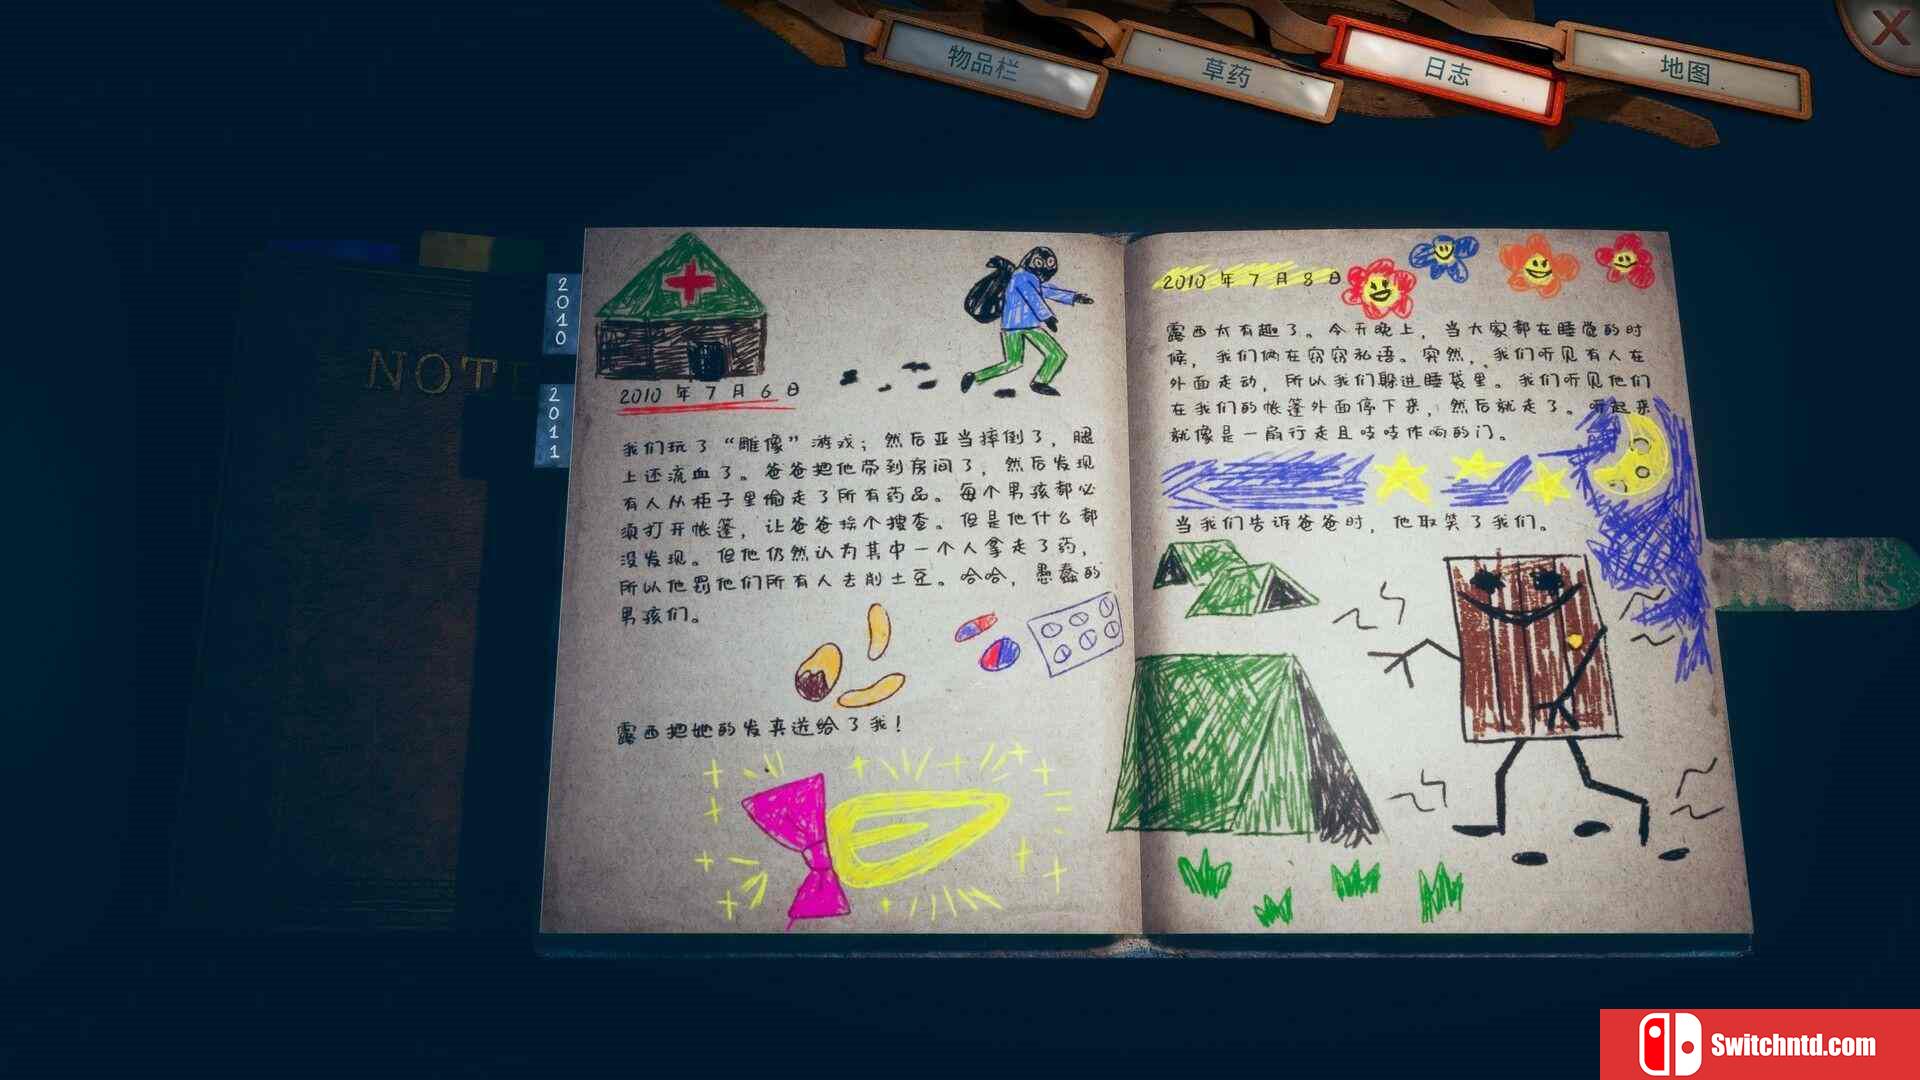 物品栏
草药
日志
地图
X
NOTE
2010
2011
2010年7月6日
我们玩了“雕像”游戏；然后亚当摔倒了，腿
上还流血了。爸爸把他带到房间了，然后发现
有人从柜子里偷走了所有药品。每个男孩都必
须打开帐篷，让爸爸挨个搜查。但是他什么都
没发现。但他仍然认为其中一个人拿走了药，
所以他罚他们所有人去削土豆。哈哈，愚蠢的
男孩们。
露西把她的发夹送给了我！
2010年7月8日
露西太有趣了。今天晚上，当大家都在睡觉的时
候，我们俩在窃窃私语。突然，我们听见有人在
外面走动，所以我们躲进睡袋里。我们听见他们
在我们的帐篷外面停下来，然后就走了。听起来
就像是一扇行走且吱吱作响的门。
当我们告诉爸爸时，他取笑了我们。
Switchntd.com